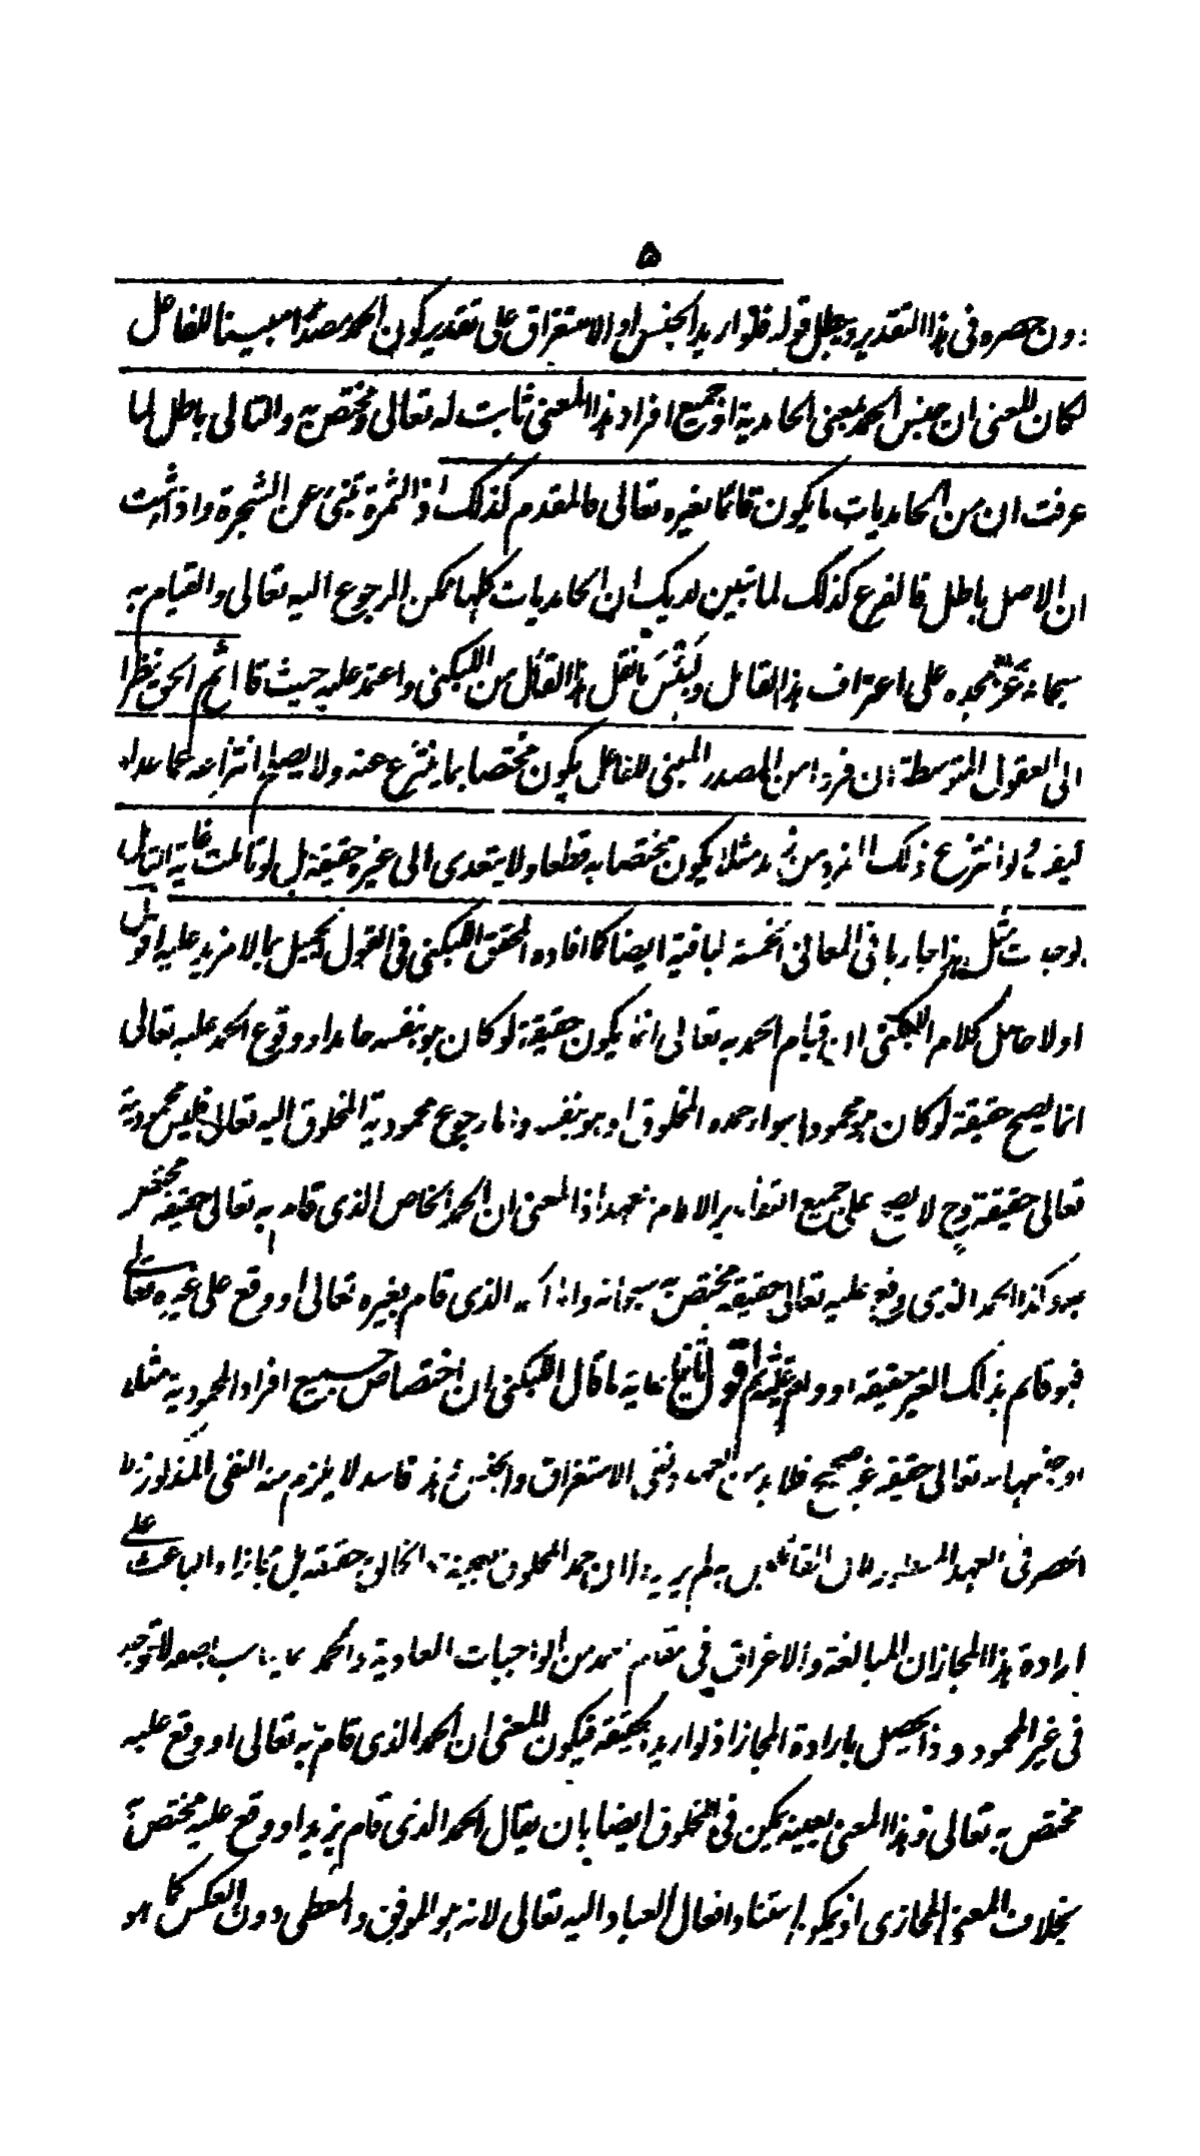 ۵
دون حصره فى هذا التقدير ويبطل قوله فلو اريد الجنس او الاستغراق على تقدير كون الحمد مصدرا مبينا للفاعل
لكان المعنى ان جنس الحمد بمعنى الحامدية او جميع افراد هذا المعنى ثابت له تعالى ومختص به والتالى باطل لما
عرفت ان من الحامديات ما يكون قائما بغيره تعالى فالمقدم كذلك اذ الثمرة تنبئ عن الشجرة واذا ثبت
ان الاصل باطل فالفرع كذلك لما تبين لديك ان الحامديات كلها ممكن الرجوع اليه تعالى والقيام به
سبحانه عز مجده على اعتراف هذا القائل ولبئس ما نقل هذا القائل من اللبكنى واعتمد عليه حيث قال ثم الحق نظرا
الى العقول المتوسطة ان فردا من المصدر المبنى للفاعل يكون مختصا بما ينتزع عنه ولا يصلح انتزاعه عما عداه
ذلك الفرد من زيد مثلا يكون مختصا به قطعا ولا يتعدى الى غيره حقيقة بل لو تاملت غاية التامل
لوجدت مثل هذا جاريا فى المعانى الخمسة الباقية ايضا كما افاده المحقق اللبكنى فى القول الجميل بما لا مزيد عليه اقول
اولا حاصل كلام اللبكنى ان قيام الحمد به تعالى انما يكون حقيقة لو كان هو بنفسه حامدا ووقوع الحمد عليه تعالى
انما يصح حقيقة لو كان هو محمودا سواء حمده المخلوق او هو بنفسه واما رجوع محمودية المخلوق اليه تعالى فليس محمودية
تعالى حقيقة وح لا يصح على جميع التقادير الا لام العهد اذ المعنى ان الحمد الخاص الذى قام به تعالى حقيقة مختص
به وكذا الحمد الذى وقع عليه تعالى حقيقة مختص به سبحانه واما الحمد الذى قام بغيره تعالى او وقع على غيره تعالى
فهو قائم بذلك الغير حقيقة او واقع عليه ثم اقول ثانيا غاية ما قال اللبكنى ان اختصاص جميع افراد المحمودية مثلا
او جنسها به تعالى حقيقة غير صحيح فلا بد من العهد ونفى الاستغراق والجنس و هذا فاسد لا يلزم منه النفى المذكور ولا
الحصر فى العهد المسطور لان القائلين به لم يريدوا ان حمد المخلوق بعينه حمد الخالق حقيقة بل مجازا والباعث على
ارادة هذا المجاز ان المبالغة والاغراق فى مقام الحمد من الواجبات العادية والحمد بما يناسب بصفة لا توجد
فى غير المحمود وذا يحصل بارادة المجاز اذ لو اريد الحقيقة فيكون المعنى ان الحمد الذى قام به تعالى او وقع عليه
مختص به تعالى وهذا المعنى بعينه يمكن فى المخلوق ايضا بان يقال الحمد الذى قام بزيد او وقع عليه مختص به
بخلاف المعنى المجازى اذ يمكن استناد افعال العباد اليه تعالى لانه هو الموفق والمعطى دون العكس كما هو